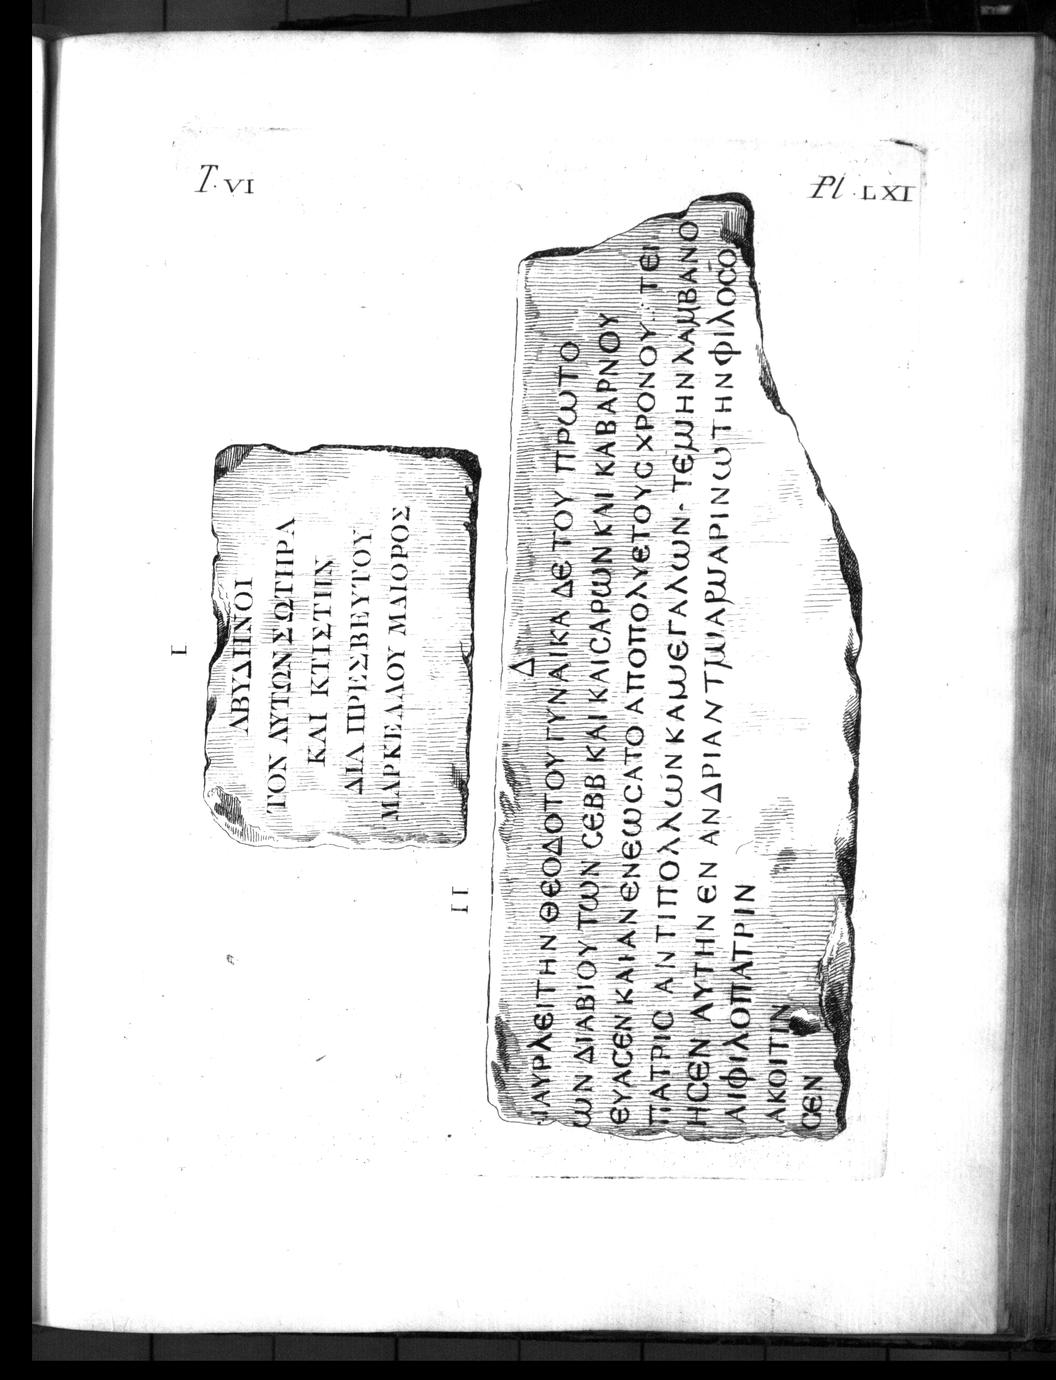 T. VI
Pl. LXI
I
ΑΒΥΔΗΝΟΙ
ΤΟΝ ΑΥΤΩΝ ΣΩΤΗΡΑ
ΚΑΙ ΚΤΙΣΤΗΝ
ΔΙΑ ΠΡΕΣΒΕΥΤΟΥ
ΜΑΡΚΕΛΛΟΥ ΜΑΙΟΡΟΣ
II
Δ
ΑΥΡΛΕΙΤΗΝ ΘΕΟΔΟΤΟΥ ΓΥΝΑΙΚΑ ΔΕ ΤΟΥ ΠΡΩΤΟ
ΩΝ ΔΙΑΒΙΟΥ ΤΩΝ ϹΕΒΒ ΚΑΙ ΚΑΙϹΑΡΩΝ ΚΑΙ ΚΑΒΑΡΝΟΥ
ΕΥΑϹΕΝ ΚΑΙ ΑΝΕΝΕΩϹΑΤΟ ΑΠΟ ΠΟΛΥΕΤΟΥϹ ΧΡΟΝΟΥ ΤΕΙ
ΠΑΤΡΙϹ ΑΝΤΙ ΠΟΛΛΩΝ ΚΑΙ ΜΕΓΑΛΩΝ ΤΕΙΜΗΝ ΛΑΜΒΑΝΟ
ΗϹΕΝ ΑΥΤΗΝ ΕΝ ΑΝΔΡΙΑΝΤΙ ΜΑΡΜΑΡΙΝΩ ΤΗΝ ΦΙΛΟϹΟ
ΑΙ ΦΙΛΟΠΑΤΡΙΝ
ΑΚΟΙΤΙΝ
ϹΕΝ